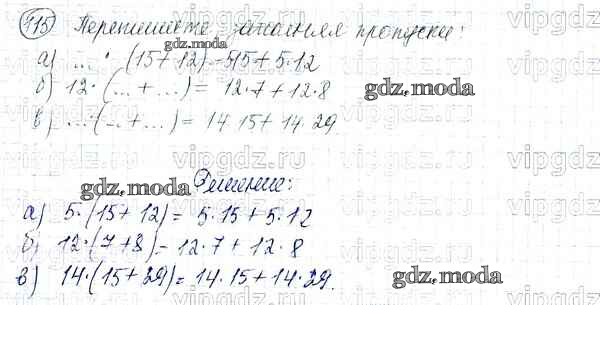 115 Перепишите, заполняя пропуски:
а) ... · (15 + 12) = 5·15 + 5·12
б) 12·(... + ...) = 12·7 + 12·8
в) ...·(... + ...) = 14·15 + 14·29
Решение:
а) 5·(15 + 12) = 5·15 + 5·12
б) 12·(7 + 8) = 12·7 + 12·8
в) 14·(15 + 29) = 14·15 + 14·29.
gdz.moda
gdz.moda
gdz.moda
gdz.moda
vipgdz.ru
vipgdz.ru
vipgdz.ru
vipgdz.ru
vipgdz.ru